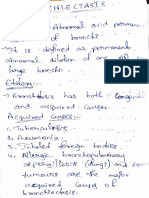 CHIECTASIS
Abnormal and perman
of bronchi
→ It is defined as permanent
abnormal dilation of one
large bronchi.
Etiology:-
→ Bronchiectasis has both Congenit
and acquired Causes.
Acquired Causes:-
1. Tuberculosis
2. Pneumonia
3. Inhaled foreign bodies
4. Allergic bronchopulmonary
(fungi) and
tumours are the major
acquired Causes of
bronchiectasis.